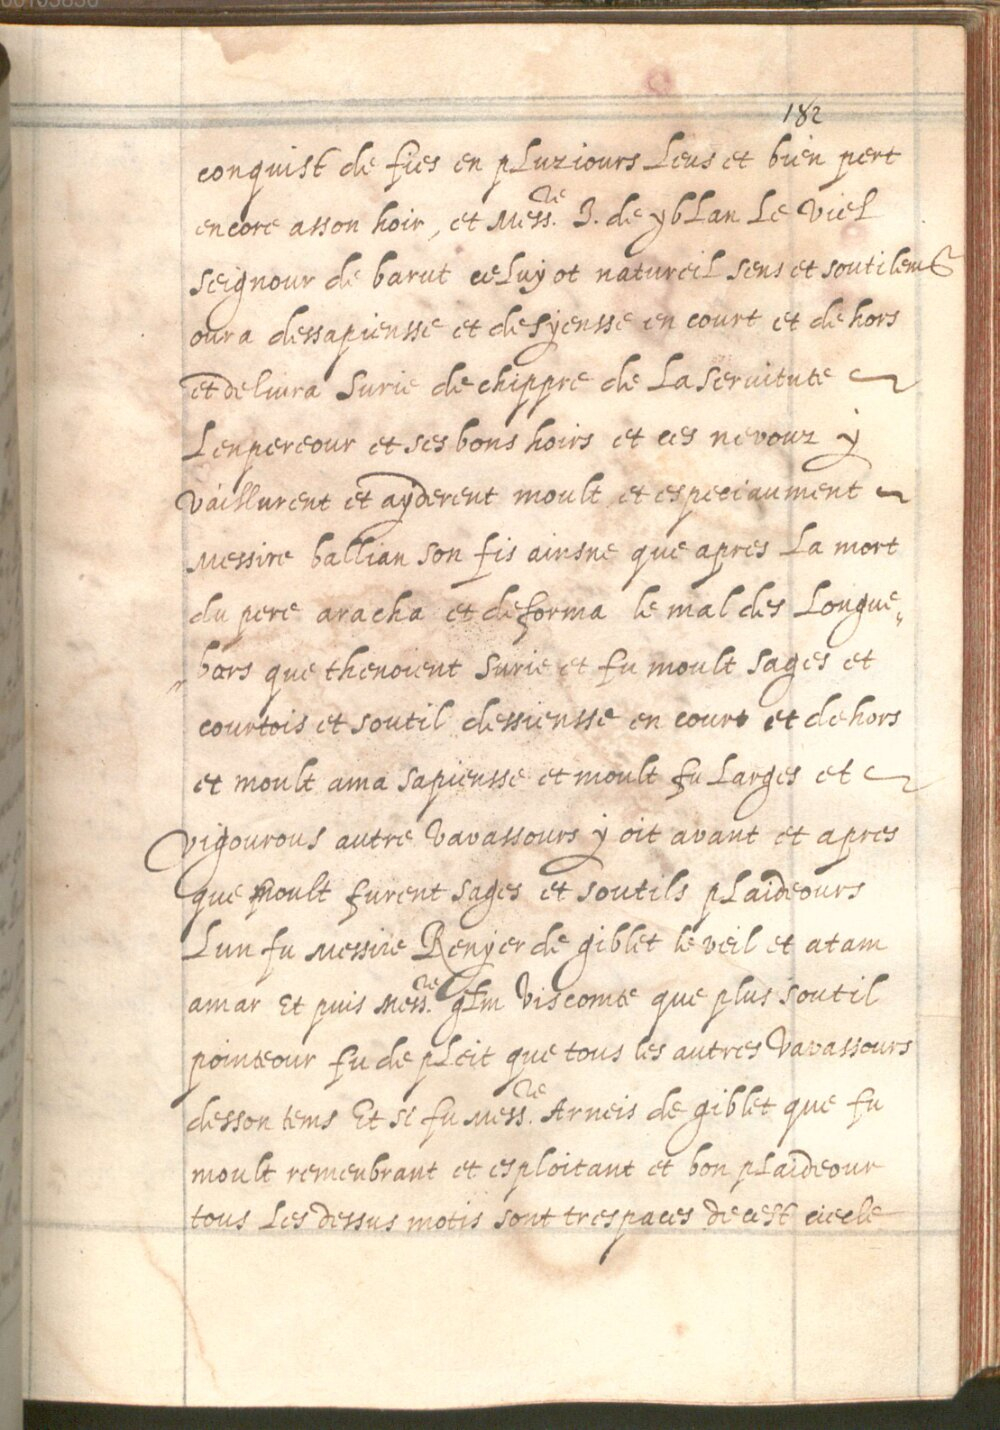 182
conquist de fies en pluziours Leus et bien pert
encore asson hoir, et Mess.re J. de yblan Le Viel
seignour de barut celuy ot natureil sens et soutilemt
oura dessapiensse et desyensse en court et dehors
et delivra Surie de chippre de La servitute
Lenpereour et ses bons hoirs et ces nevouz y
vaillurent et ayderent moult et especiaument
Messire ballian son fis ainsne que apres La mort
du pere aracha et deforma le mal des Longue„
„bars que thenoient Surie et fu moult sages et
courtois et soutil dessiensse en court et dehors
et moult ama sapiensse et moult fu Larges et
vigourous autre Vavassours y oit avant et apres
que moult furent sages et soutils plaideours
Lun fu Messire Renyer de giblet le veil et atam
amar Et puis Mess.re glm Viscomte que plus soutil
pointeour fu de pleit que tous les autres Vavassours
desson tems Et si fu Mess.re Arneis de giblet que fu
moult remenbrant et esploitant et bon plaideour
tous Les dessus motis sont trespaces de cest ciecle